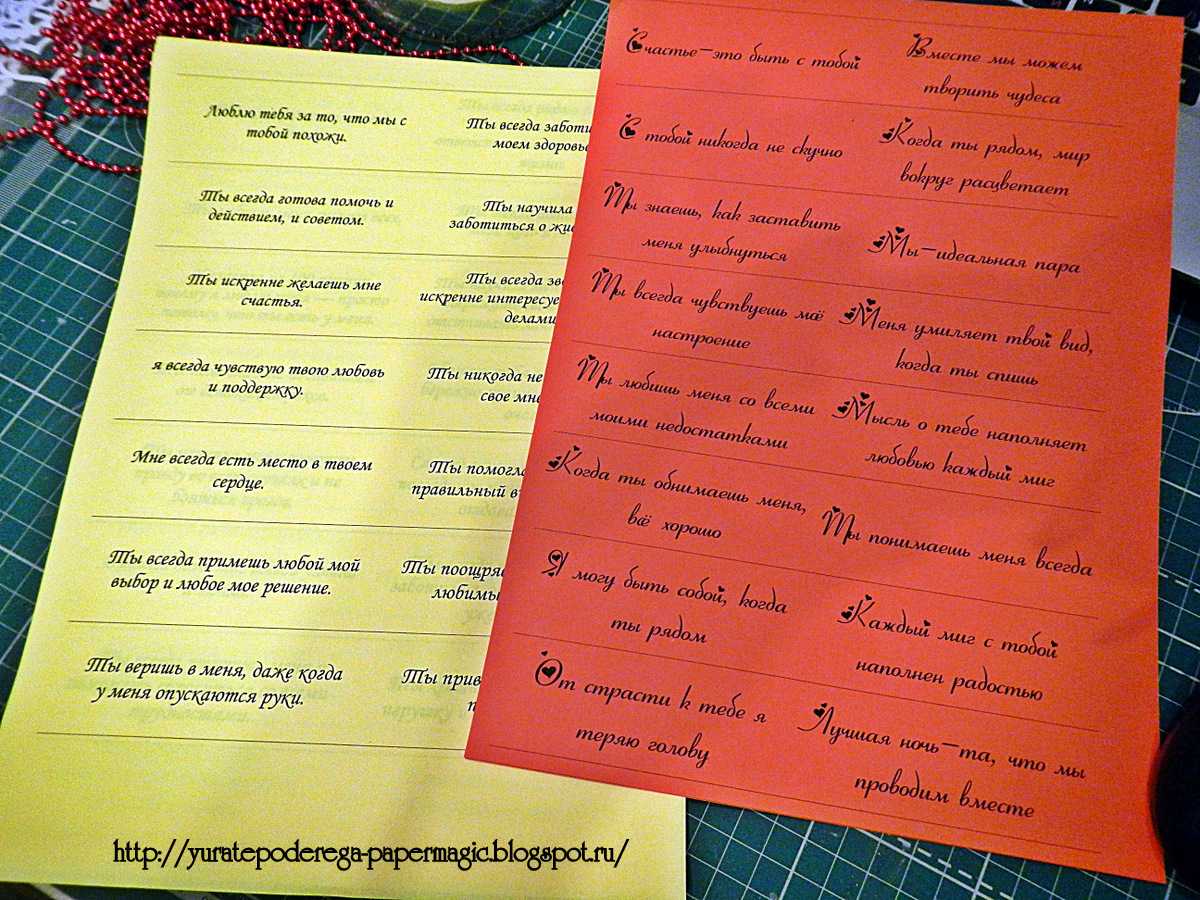 Люблю тебя за то, что мы с
тобой похожи.
Ты всегда готова помочь и
действием, и советом.
Ты искренне желаешь мне
счастья.
я всегда чувствую твою любовь
и поддержку.
Мне всегда есть место в твоем
сердце.
Ты всегда примешь любой мой
выбор и любое мое решение.
Ты веришь в меня, даже когда
у меня опускаются руки.
Ты всегда
моем
Ты научила
заботиться о
Ты всегда
искренне
делами
Ты никогда не
свое
Ты помогла
правильный
Ты
Ты
Счастье—это быть с тобой
С тобой никогда не скучно
Ты знаешь, как заставить
меня улыбнуться
Ты всегда чувствуешь моё
настроение
Ты любишь меня со всеми
моими недостатками
Когда ты обнимаешь меня,
всё хорошо
Я могу быть собой, когда
ты рядом
От страсти к тебе я
теряю голову
Вместе мы можем
творить чудеса
Когда ты рядом, мир
вокруг расцветает
Мы—идеальная пара
Меня умиляет твой вид,
когда ты спишь
Мысль о тебе наполняет
любовью каждый миг
Ты понимаешь меня всегда
Каждый миг с тобой
наполнен радостью
Лучшая ночь—та, что мы
проводим вместе
http://yuratepoderega-papermagic.blogspot.ru/